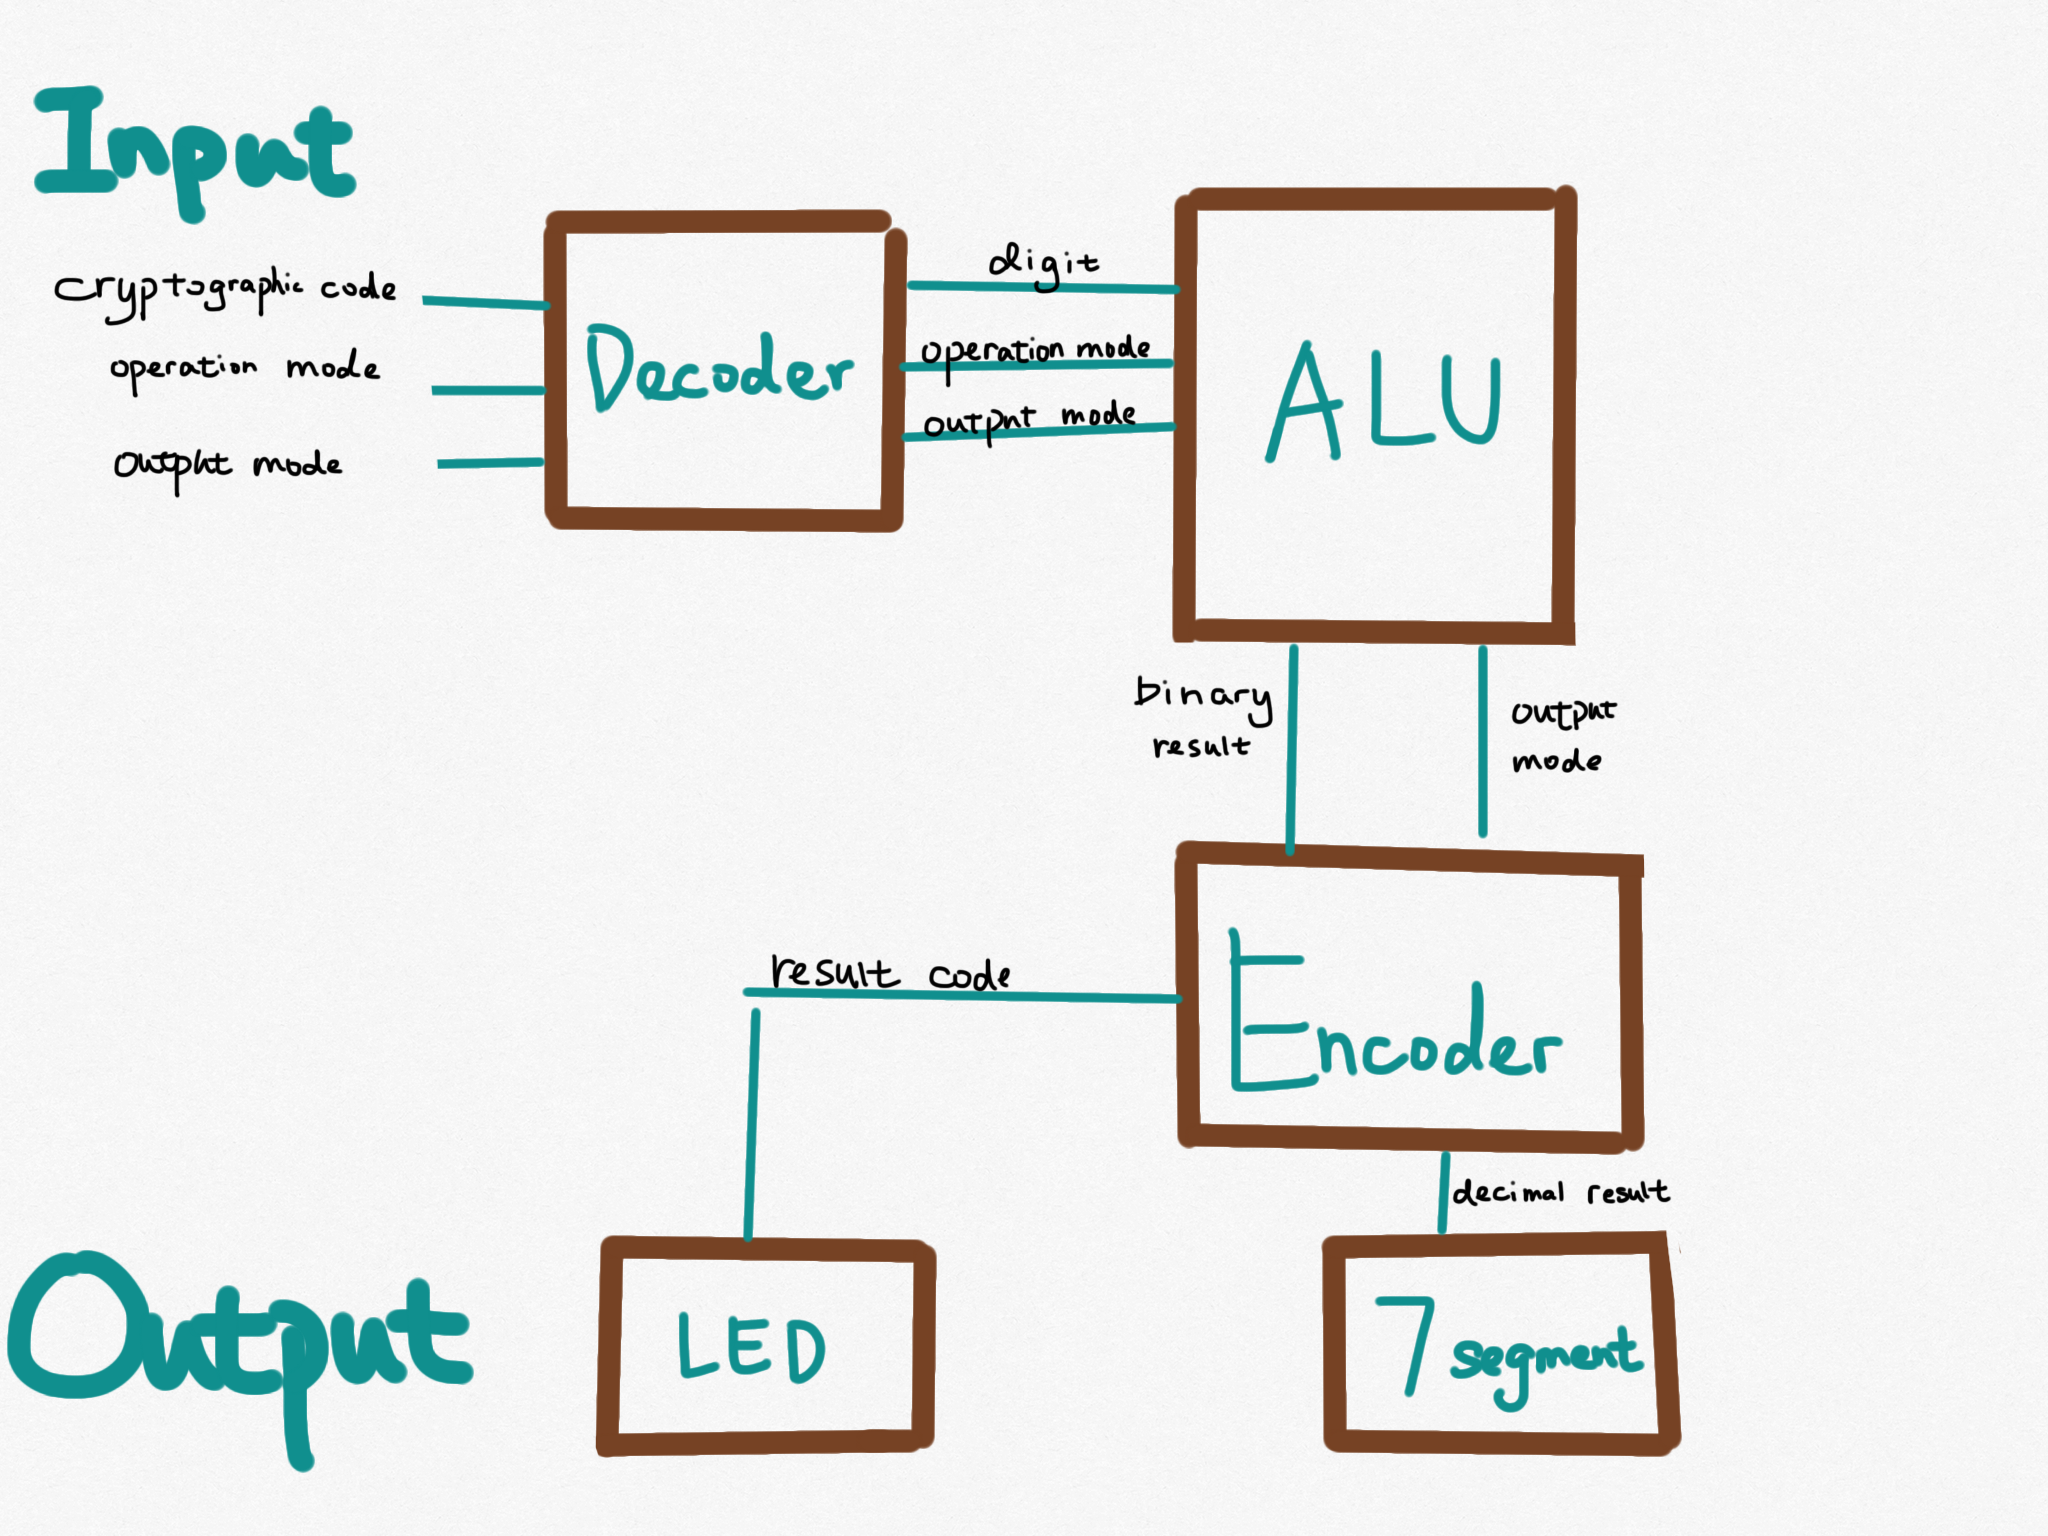 Input
cryptographic code
operation mode
output mode
Decoder
digit
operation mode
output mode
ALU
binary
result
output
mode
Encoder
result code
decimal result
Output
LED
7 segment